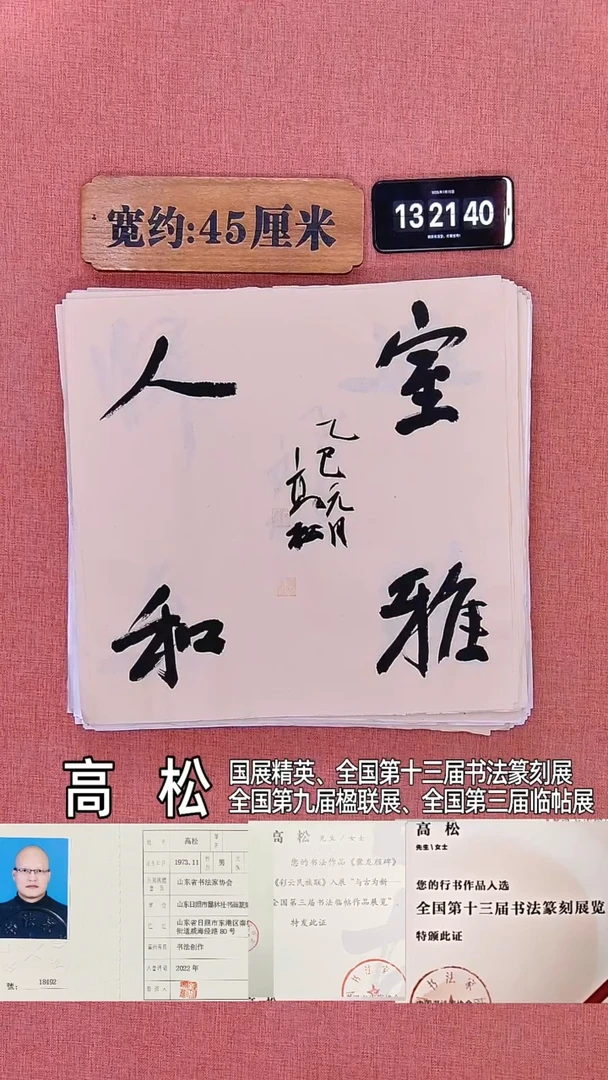 宽约:45厘米
13 21 40
室雅
人和
乙巳元月
高松
高 松
国展精英、全国第十三届书法篆刻展
全国第九届楹联展、全国第三届临帖展
高松
1975.11
男
山东省书法家协会
书法创作
2022年
號:
18692
高 松 先生/女士
您的书法作品《爨龙颜碑》
《彩云民族联》入展“与古为新
全国第三届书法临帖作品展览”,
特发此证
高 松
先生\女士
您的行书作品入选
全国第十三届书法篆刻展览
特颁此证